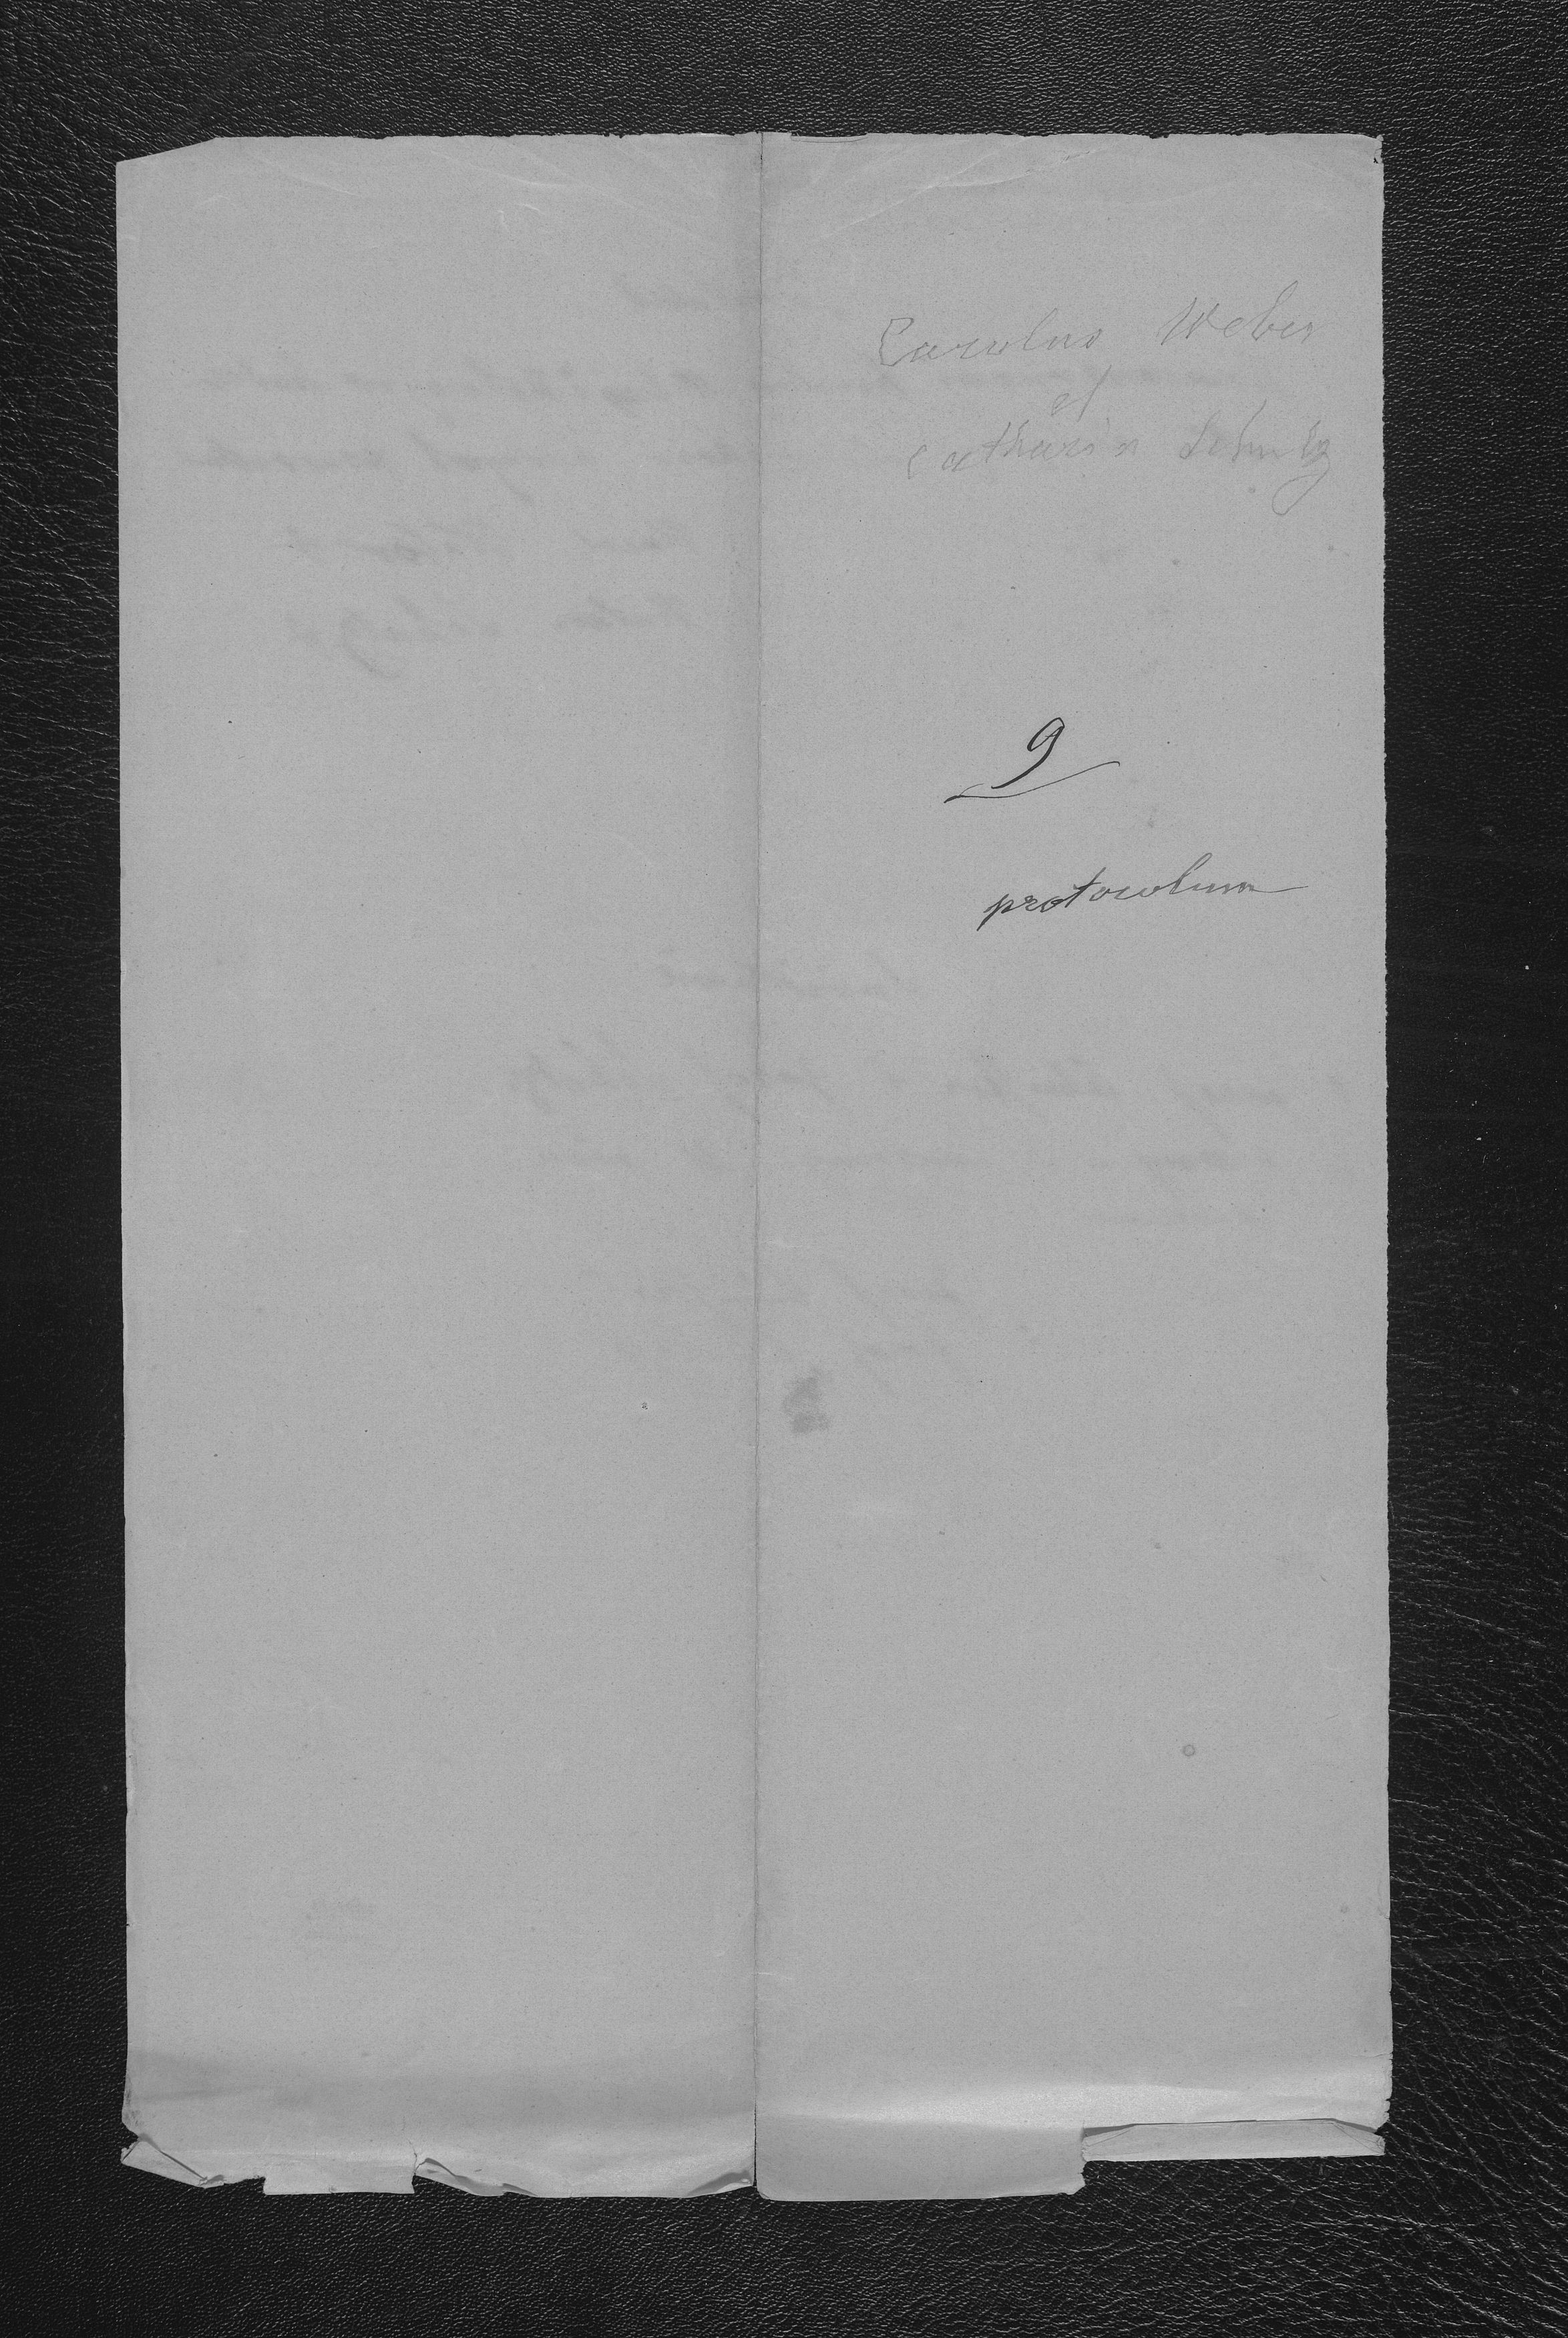 Carolus Weber
et
Catharin Schulz
9
protocolum